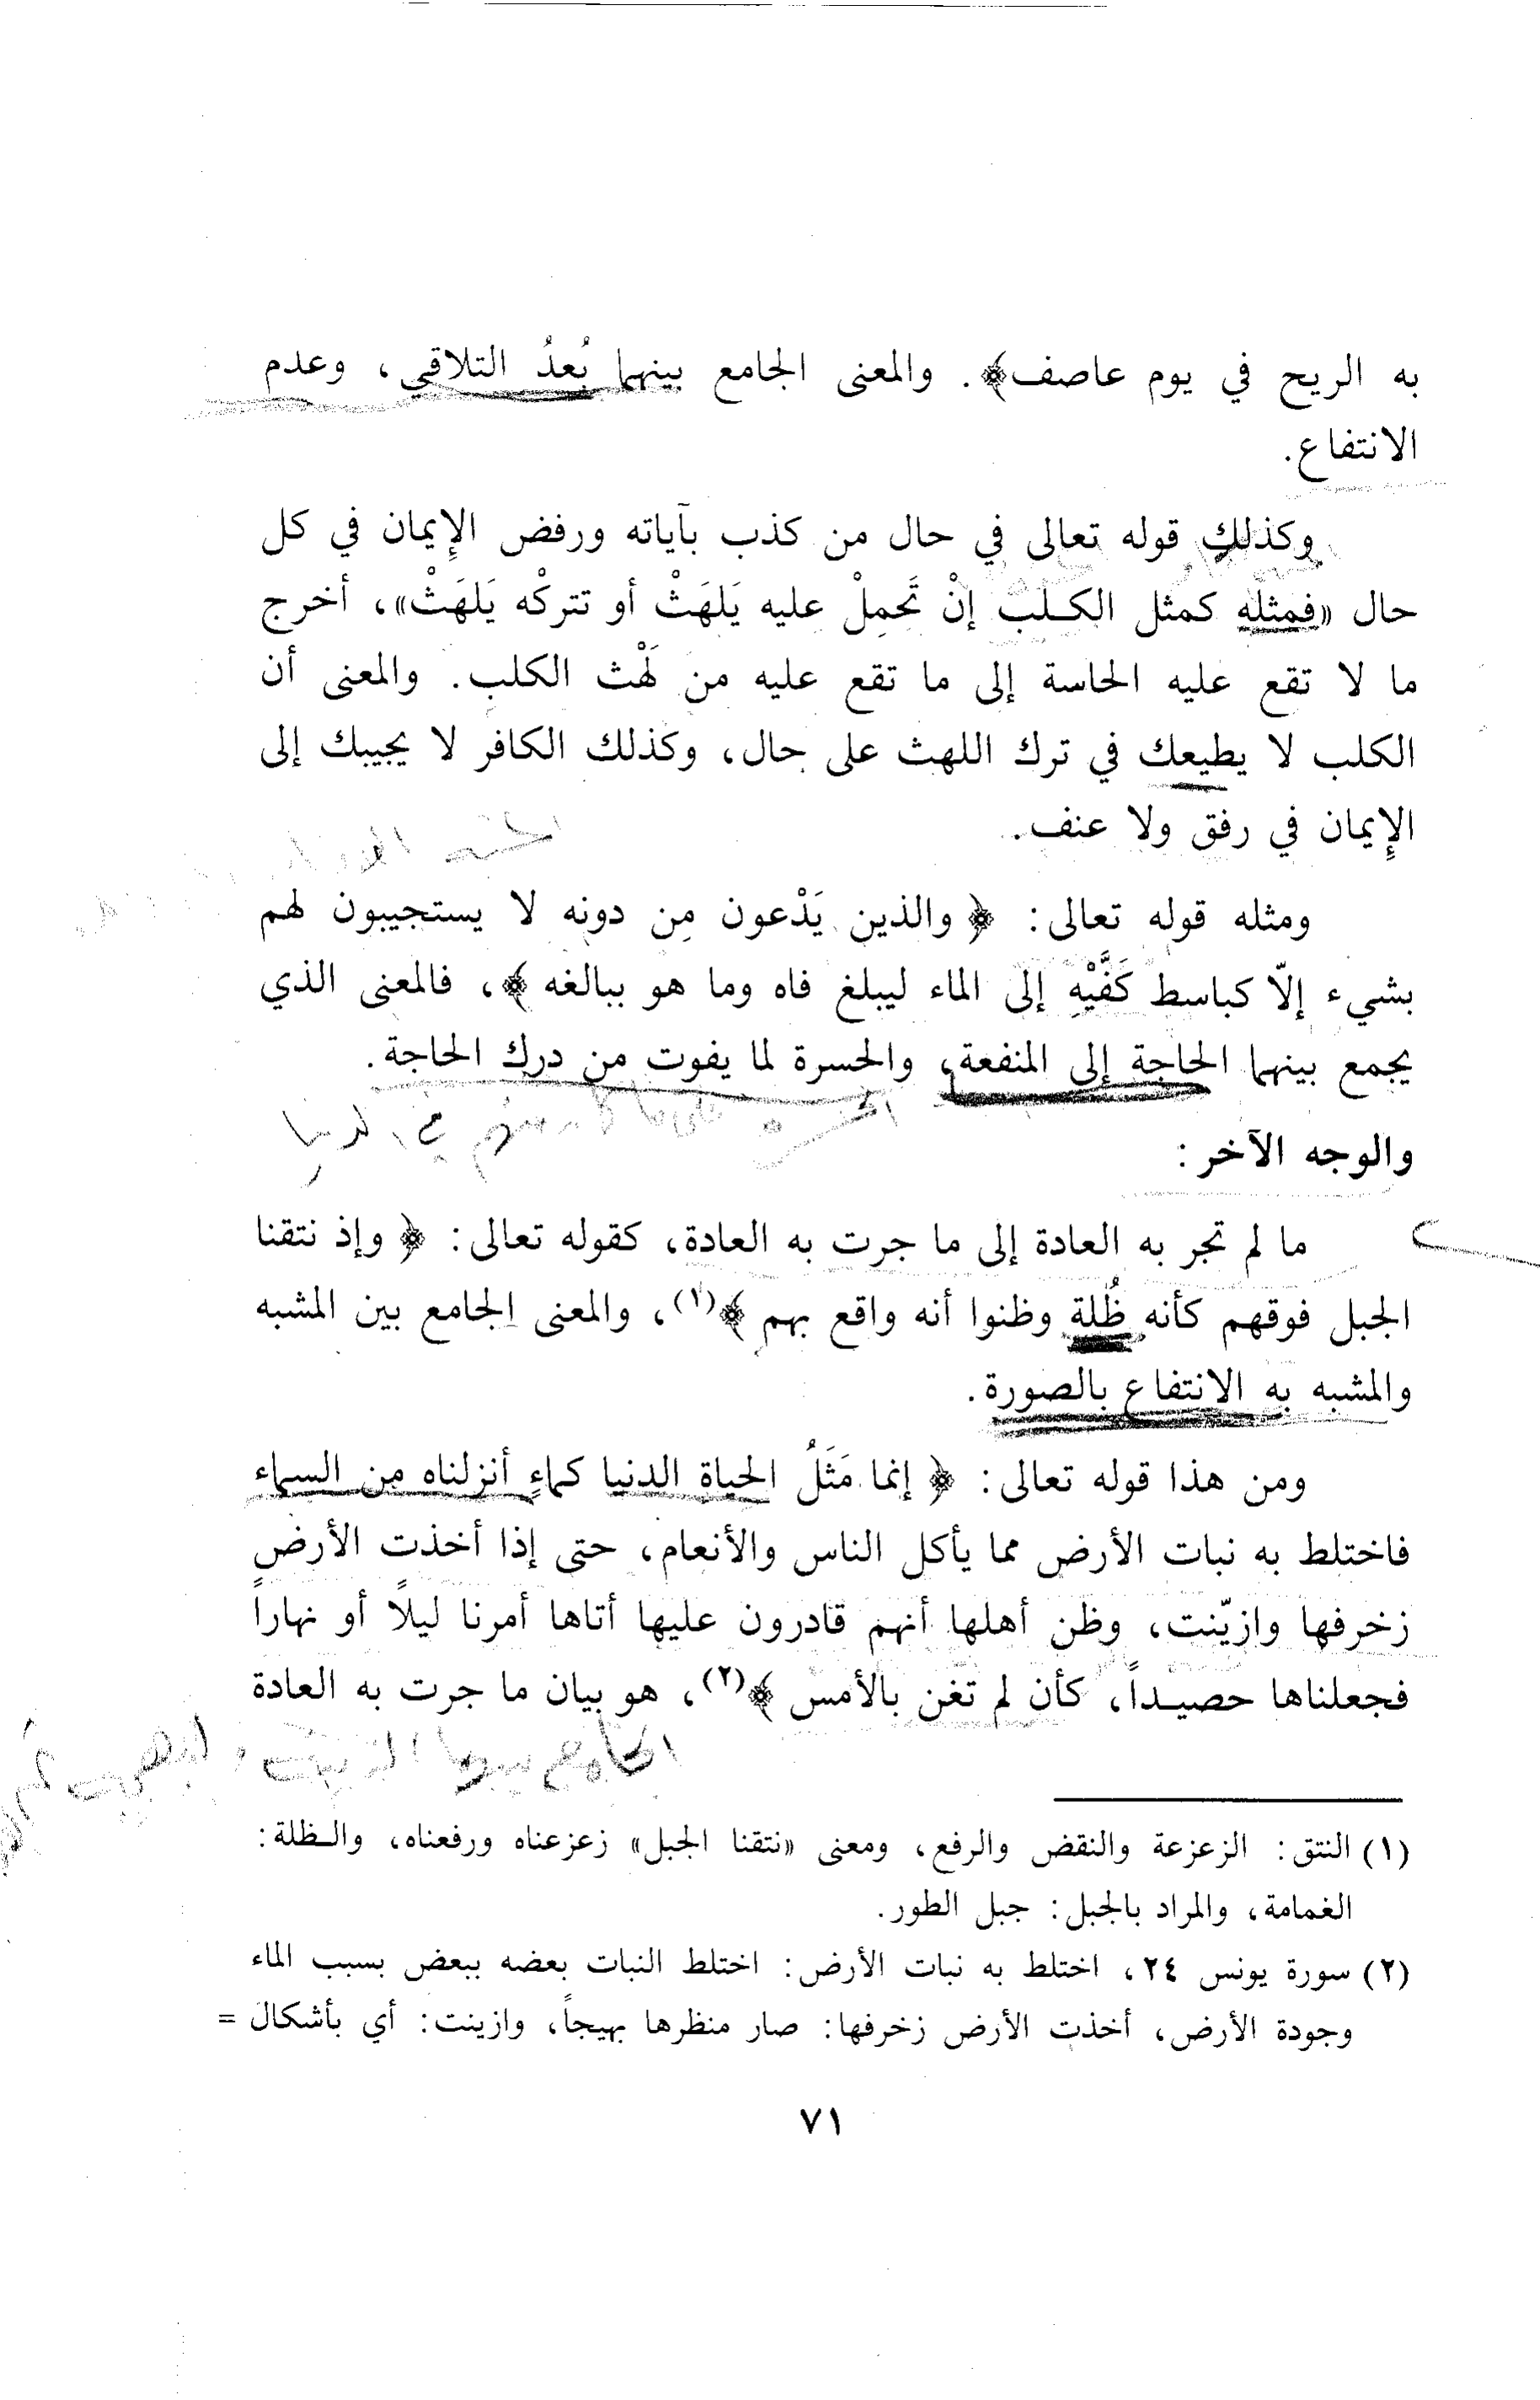 به الريح في يوم عاصف﴾. والمعنى الجامع بينهما بُعدُ التلاقي، وعدم
الانتفاع.
وكذلك قوله تعالى في حال من كذب بآياته ورفض الإِيمان في كل
حال «فمثله كمثل الكلب إنْ تَحمِلْ عليه يَلهَثْ أو تتركْه يَلهَثْ»، أخرج
ما لا تقع عليه الحاسة إلى ما تقع عليه من لَهْث الكلب. والمعنى أن
الكلب لا يطيعك في ترك اللهث على حال، وكذلك الكافر لا يجيبك إلى
الإِيمان في رفق ولا عنف.
ومثله قوله تعالى: ﴿ والذين يَدْعون مِن دونه لا يستجيبون لهم
بشيء إلاّ كباسط كَفَّيْهِ إلى الماء ليبلغ فاه وما هو ببالغه ﴾، فالمعنى الذي
يجمع بينهما الحاجة إلى المنفعة، والحسرة لما يفوت من درك الحاجة.
والوجه الآخر:
ما لم تجر به العادة إلى ما جرت به العادة، كقوله تعالى: ﴿ وإذ نتقنا
الجبل فوقهم كأنه ظُلة وظنوا أنه واقع بهم ﴾(١)، والمعنى الجامع بين المشبه
والمشبه به الانتفاع بالصورة.
ومن هذا قوله تعالى: ﴿ إنما مَثَلُ الحياة الدنيا كماءٍ أنزلناه من السماء
فاختلط به نبات الأرض مما يأكل الناس والأنعام، حتى إذا أخذت الأرض
زخرفها وازيّنت، وظن أهلها أنهم قادرون عليها أتاها أمرنا ليلاً أو نهاراً
فجعلناها حصيداً، كأن لم تغن بالأمس ﴾(٢)، هو بيان ما جرت به العادة
(١) النتق: الزعزعة والنقض والرفع، ومعنى «نتقنا الجبل» زعزعناه ورفعناه، والظلة:
الغمامة، والمراد بالجبل: جبل الطور.
(٢) سورة يونس ٢٤، اختلط به نبات الأرض: اختلط النبات بعضه ببعض بسبب الماء
وجودة الأرض، أخذت الأرض زخرفها: صار منظرها بهيجاً، وازينت: أي بأشكال =
٧١